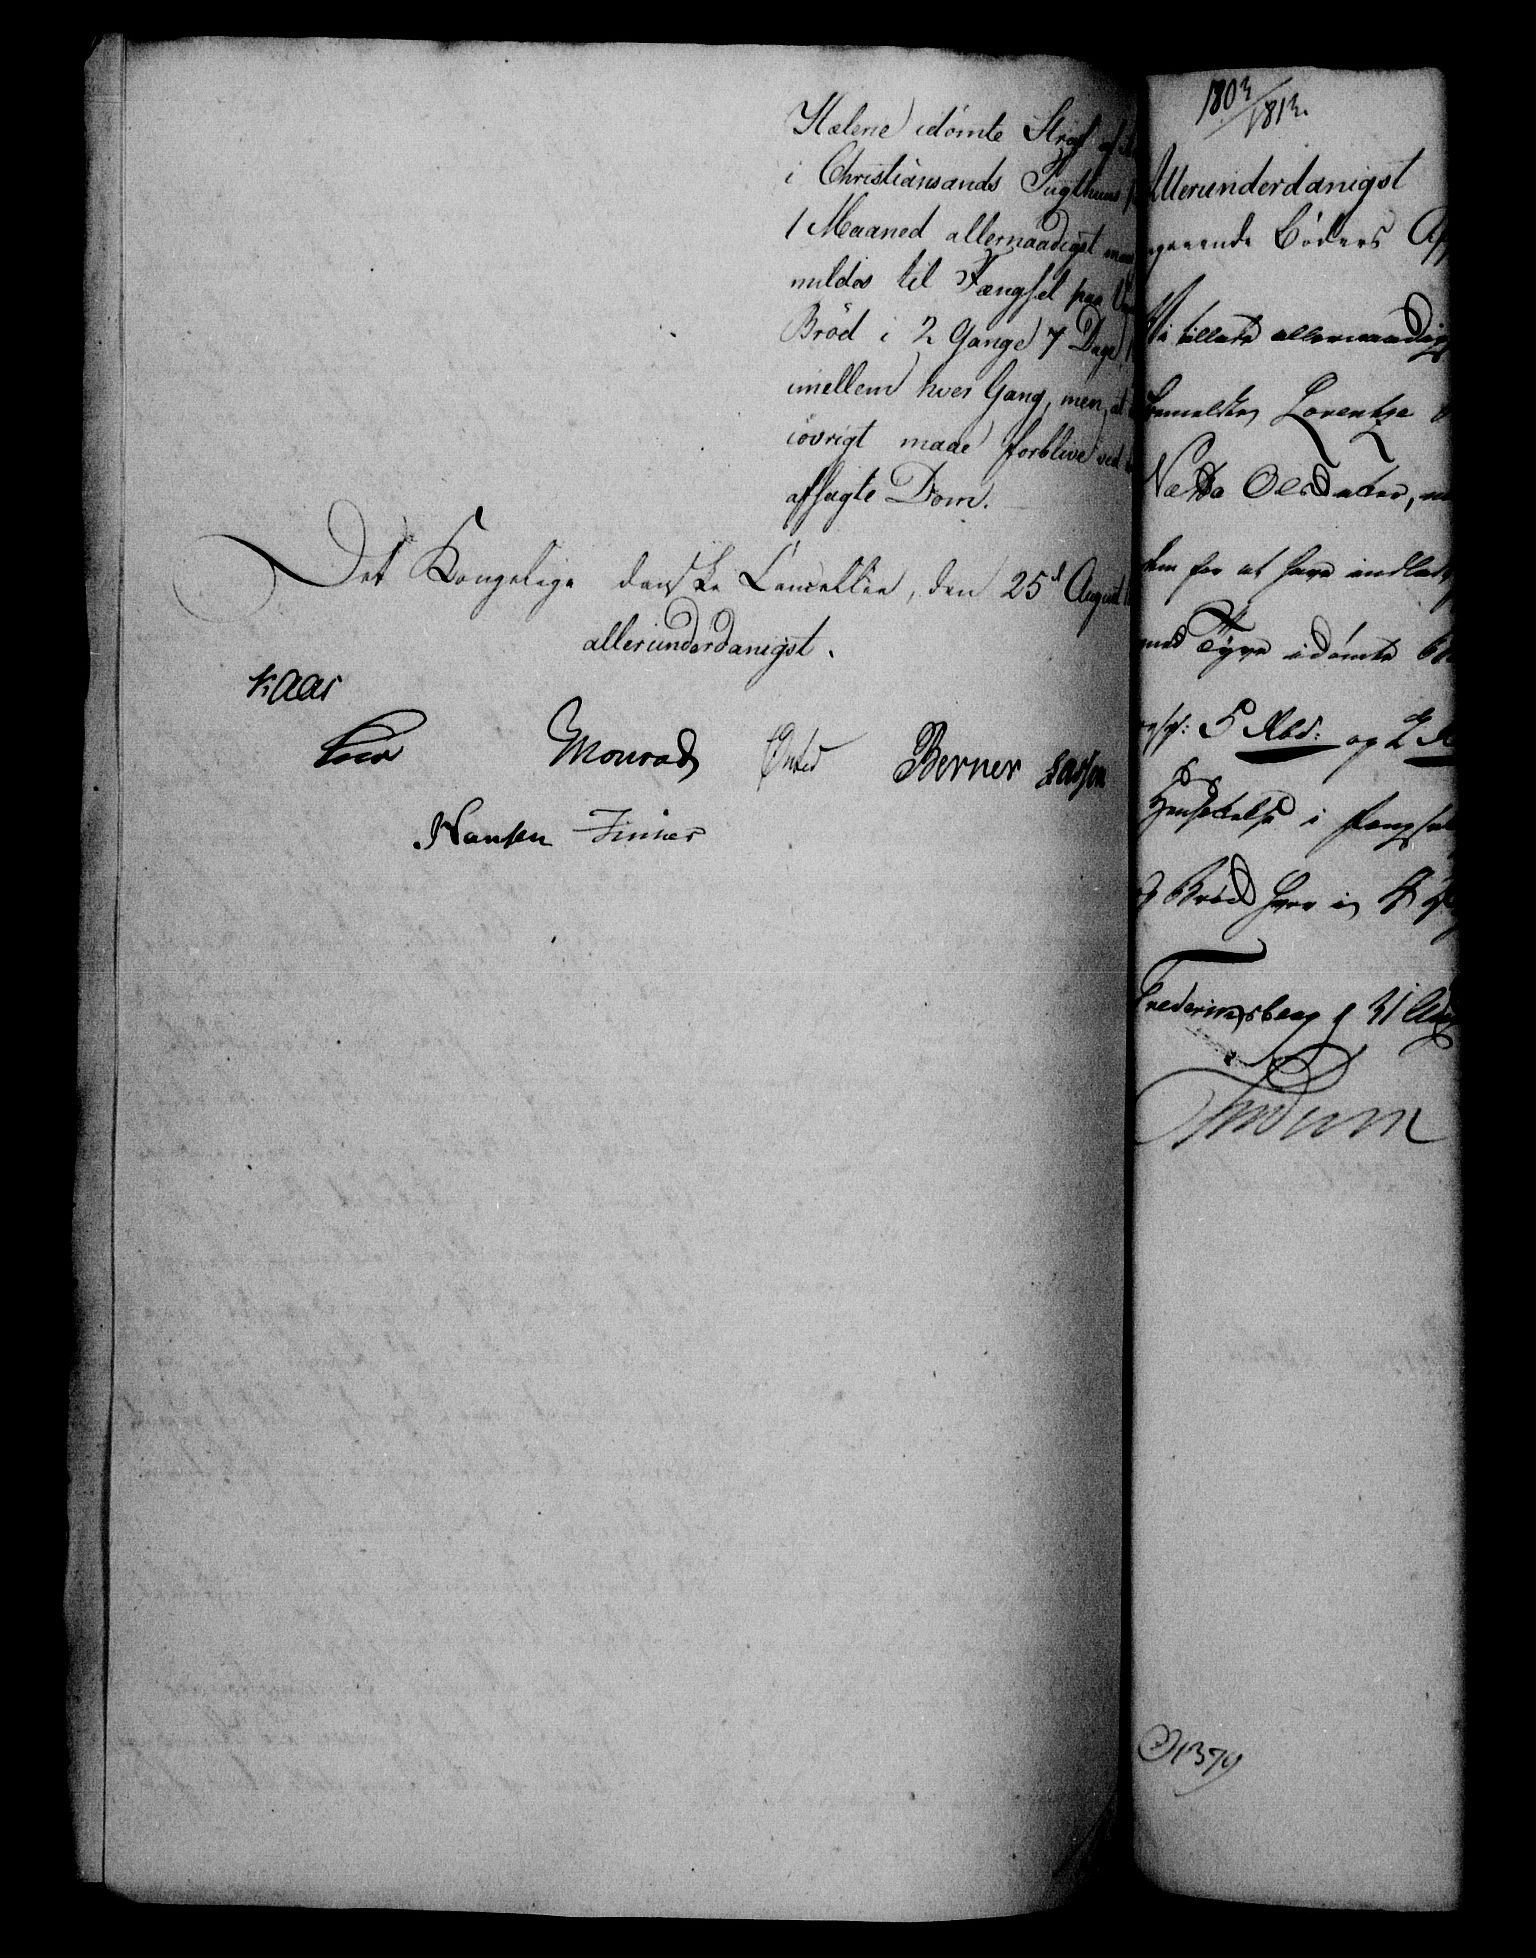 Helene idømte Straf af
i Christiansands Tugthuus
1 Maaned allernaadigst
mildes til Fængsel paa
Brød i 2 Gange 7 Dage
imellem hver Gang, men at
iøvrigt maae forblive ved
afsagte Dom.
Det Kongelige danske Cancellie, den 25d August
allerunderdanigst.
Kaas
Monrad Berner Lassen
Hansen
1803/1813.
Allerunderdanigst
gaaende Bøders
Vi tillade allernaadigst
Lorentze
Olsdatter,
dem for at have indladt
med Tyve idømte
5 Rbd: og 2
Hensættelse i Fængsel
Brød hver i
Frederiksberg d 31 Aug